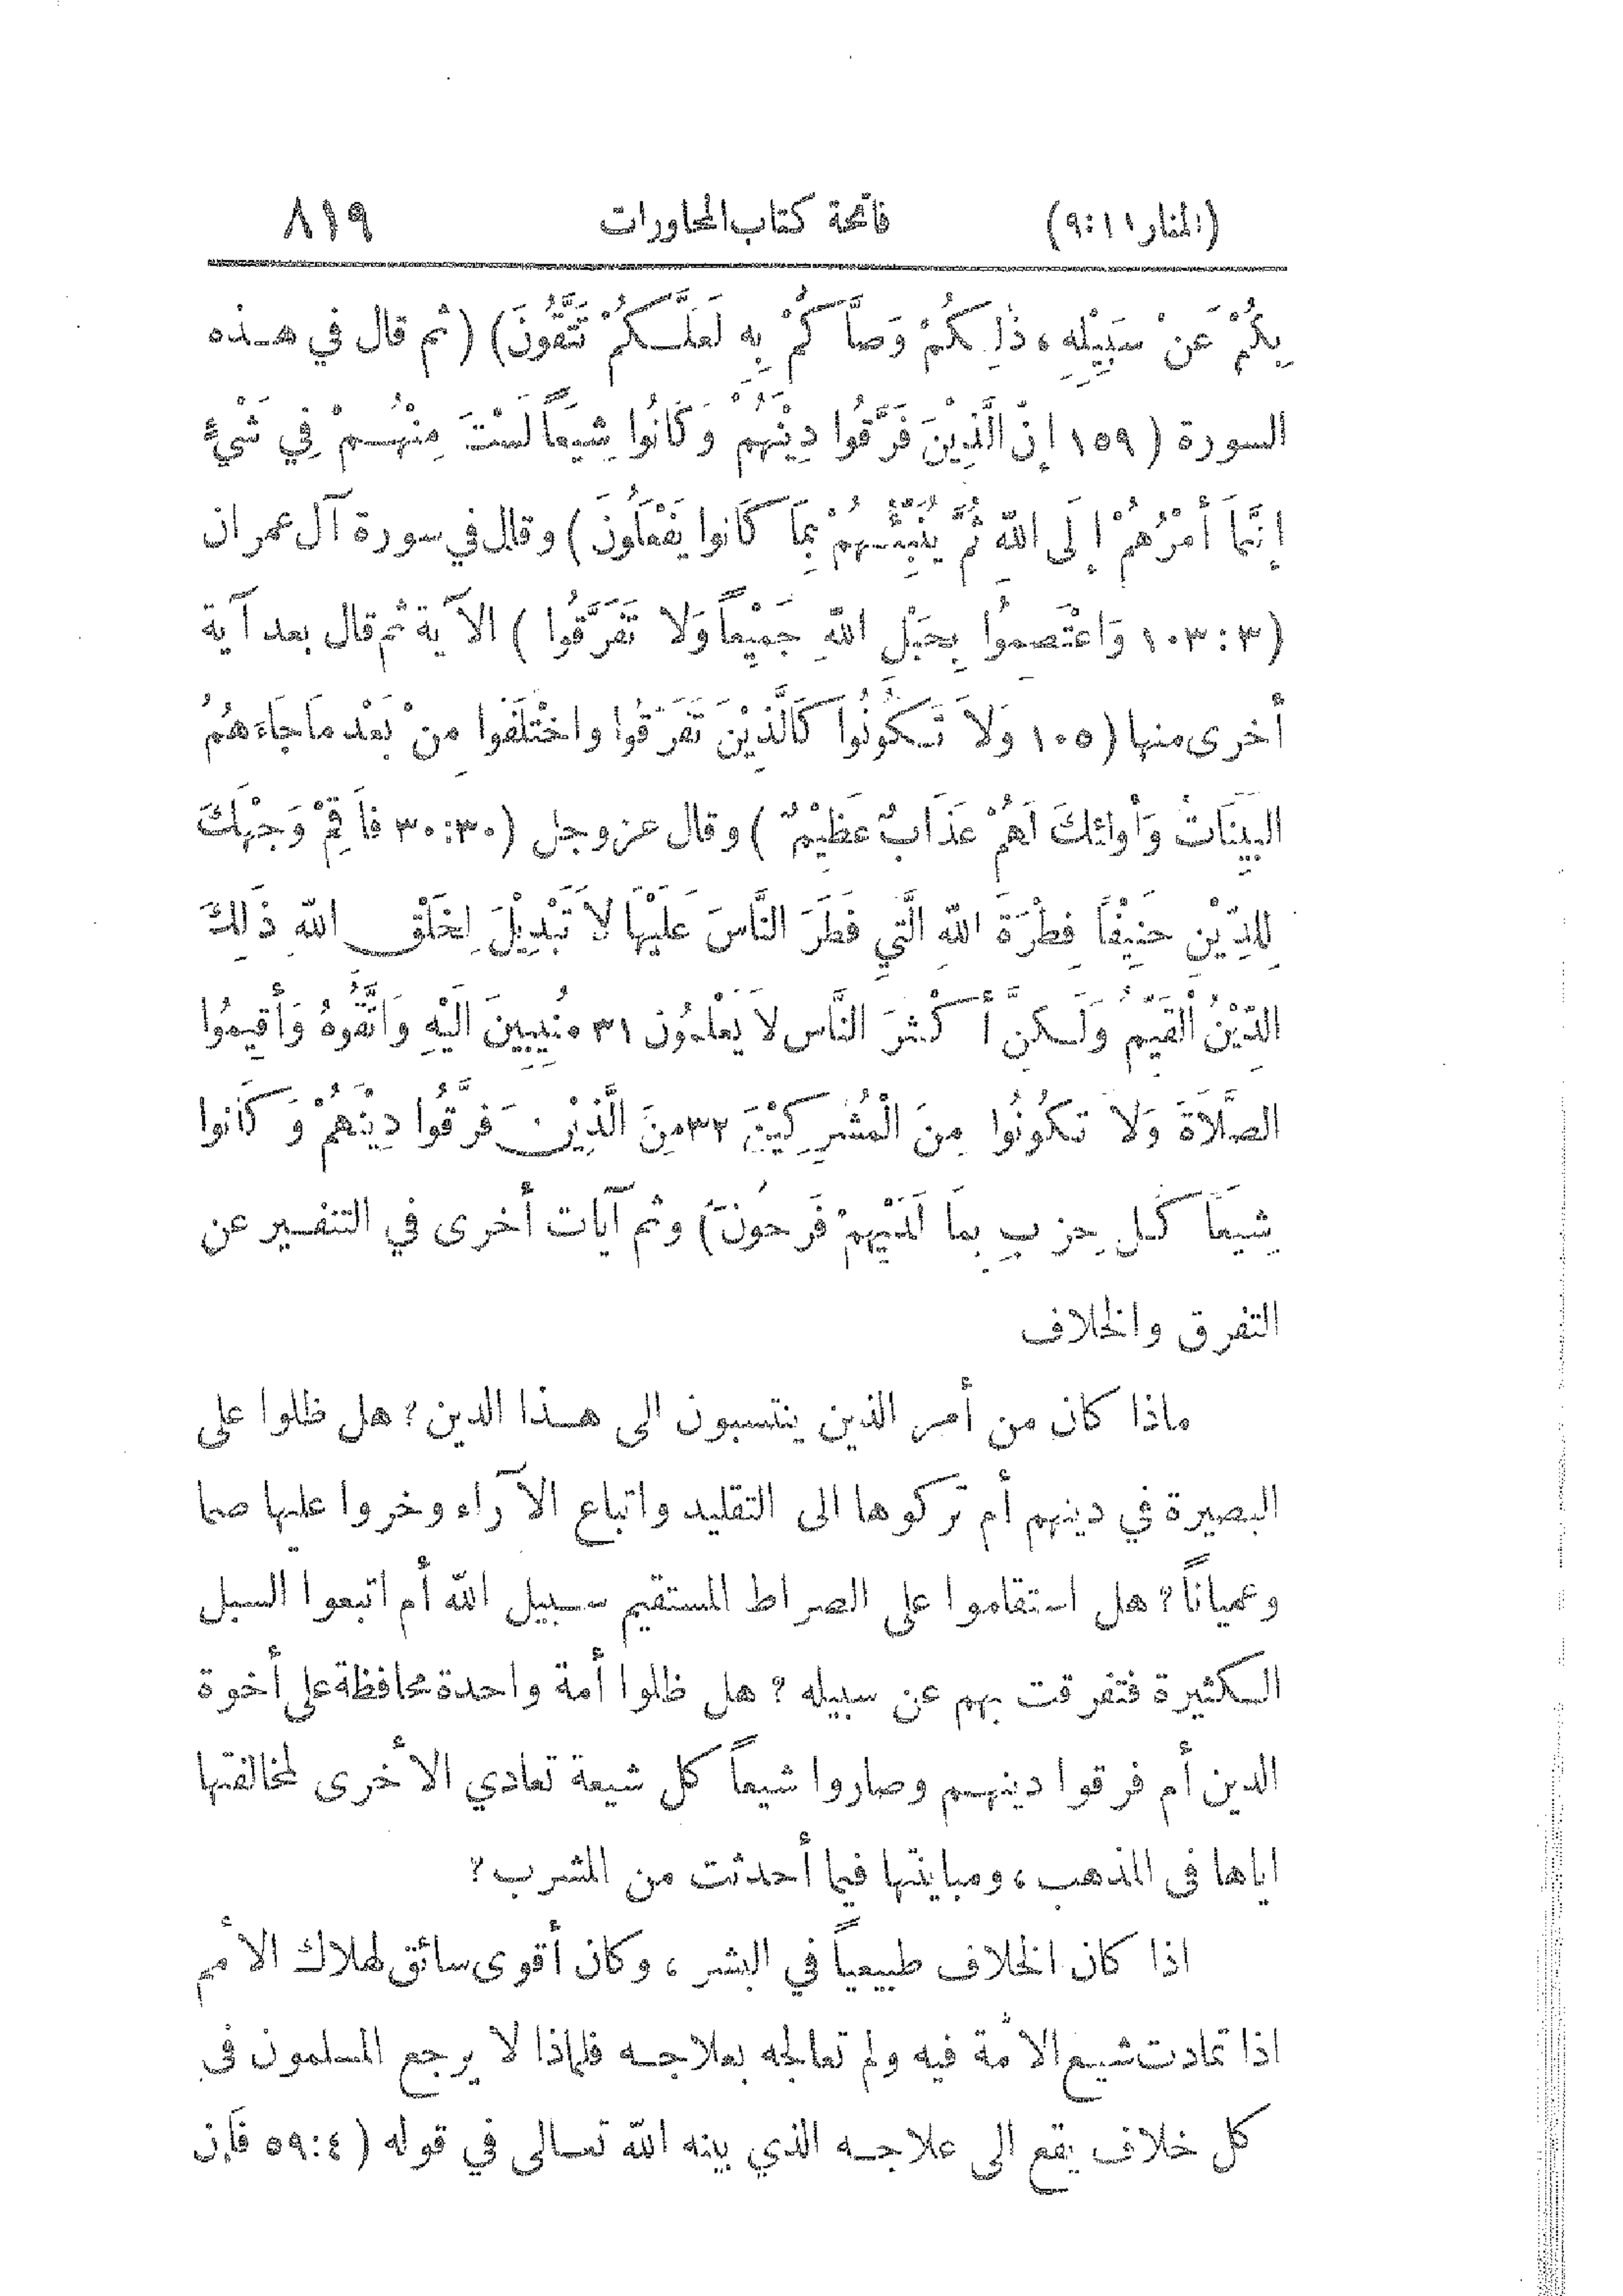 (المنار ١١:٩) فاتحة كتاب المحاورات ٨١٩
بِكُمْ عَنْ سَبِيْلِهِ ، ذٰلِكُمْ وَصَّا كُمْ بِهِ لَعَلَّكُمْ تَتَّقُونَ) (ثم قال في هذه
السورة (١٥٩ إِنّ الَّذِيْنَ فَرَّقُوا دِيْنَهُمْ وَكَانُوا شِيَعَاً لَسْتَ مِنْهُمْ فِي شَيْءٍ
إِنَّمَا أَمْرُهُمْ إِلَى اللّٰهِ ثُمَّ يُنَبِّئُهُمْ بِمَا كَانوا يَفْعَلُونَ) وقال في سورة آل عمران
(٣:١٠٣ وَاعْتَصِمُوا بِحَبْلِ اللّٰهِ جَمِيْعاً وَلا تَفَرَّقُوا) الآية ثم قال بعد آية
أخرى منها (١٠٥ وَلاَ تَكُونُوا كَالَّذِيْنَ تَفَرَقُوا واخْتَلَفَوا مِنْ بَعْد مَا جَاءَهُمُ
البَيِّنَاتُ وَأُولٰئِكَ لَهُمْ عَذَابٌ عَظِيْمٌ) وقال عز وجل (٣٠:٣٠ فَأَقِمْ وَجْهَكَ
لِلدِّيْنِ حَنِيْفَاً فِطْرَةَ اللّٰهِ الَّتِي فَطَرَ النَّاسَ عَلَيْهَا لاَ تَبْدِيْلَ لِخَلْقِ اللّٰهِ ذٰلِكَ
الدِّيْنُ الْقَيِّمُ وَلَكِنَّ أَ كْثَرَ النَّاسِ لاَ يَعْلمُون ٣١ مُنِيبِينَ الَيْهِ وَاتَّقُوهُ وَأَقِيمُوا
الصَّلاَةَ وَلا تَكُونُوا مِنَ الْمُشْرِكِيْنَ ٣٢ مِنَ الَّذِيْنَ فَرَّقُوا دِيْنَهُمْ وَكَانوا
شِيَعَاً كل حِزبٍ بِمَا لَدَيْهِمْ فَرِحُونَ) وثم آيات أخرى في التنفير عن
التفرق والخلاف
ماذا كان من أمر الذين ينتسبون الى هذا الدين ؟ هل ظلوا على
البصيرة في دينهم أم تركوها الى التقليد واتباع الآراء وخروا عليها صما
وعمياناً ؟ هل استقاموا على الصراط المستقيم سبيل الله أم اتبعوا السبل
الكثيرة فتفرقت بهم عن سبيله ؟ هل ظلوا أمة واحدة محافظة على أخوة
الدين أم فرقوا دينهم وصاروا شيعاً كل شيعة تعادي الأخرى لمخالفتها
اياها في المذهب ، ومباينتها فيما أحدثت من المشرب ؟
اذا كان الخلاف طبيعياً في البشر ، وكان أقوى سائق لهلاك الأمم
اذا تمادت شيع الأمة فيه ولم تعالجه بعلاجه فلماذا لا يرجع المسلمون في
كل خلاف يقع الى علاجه الذي بينه الله تعالى في قوله (٤:٥٩ فَإِن